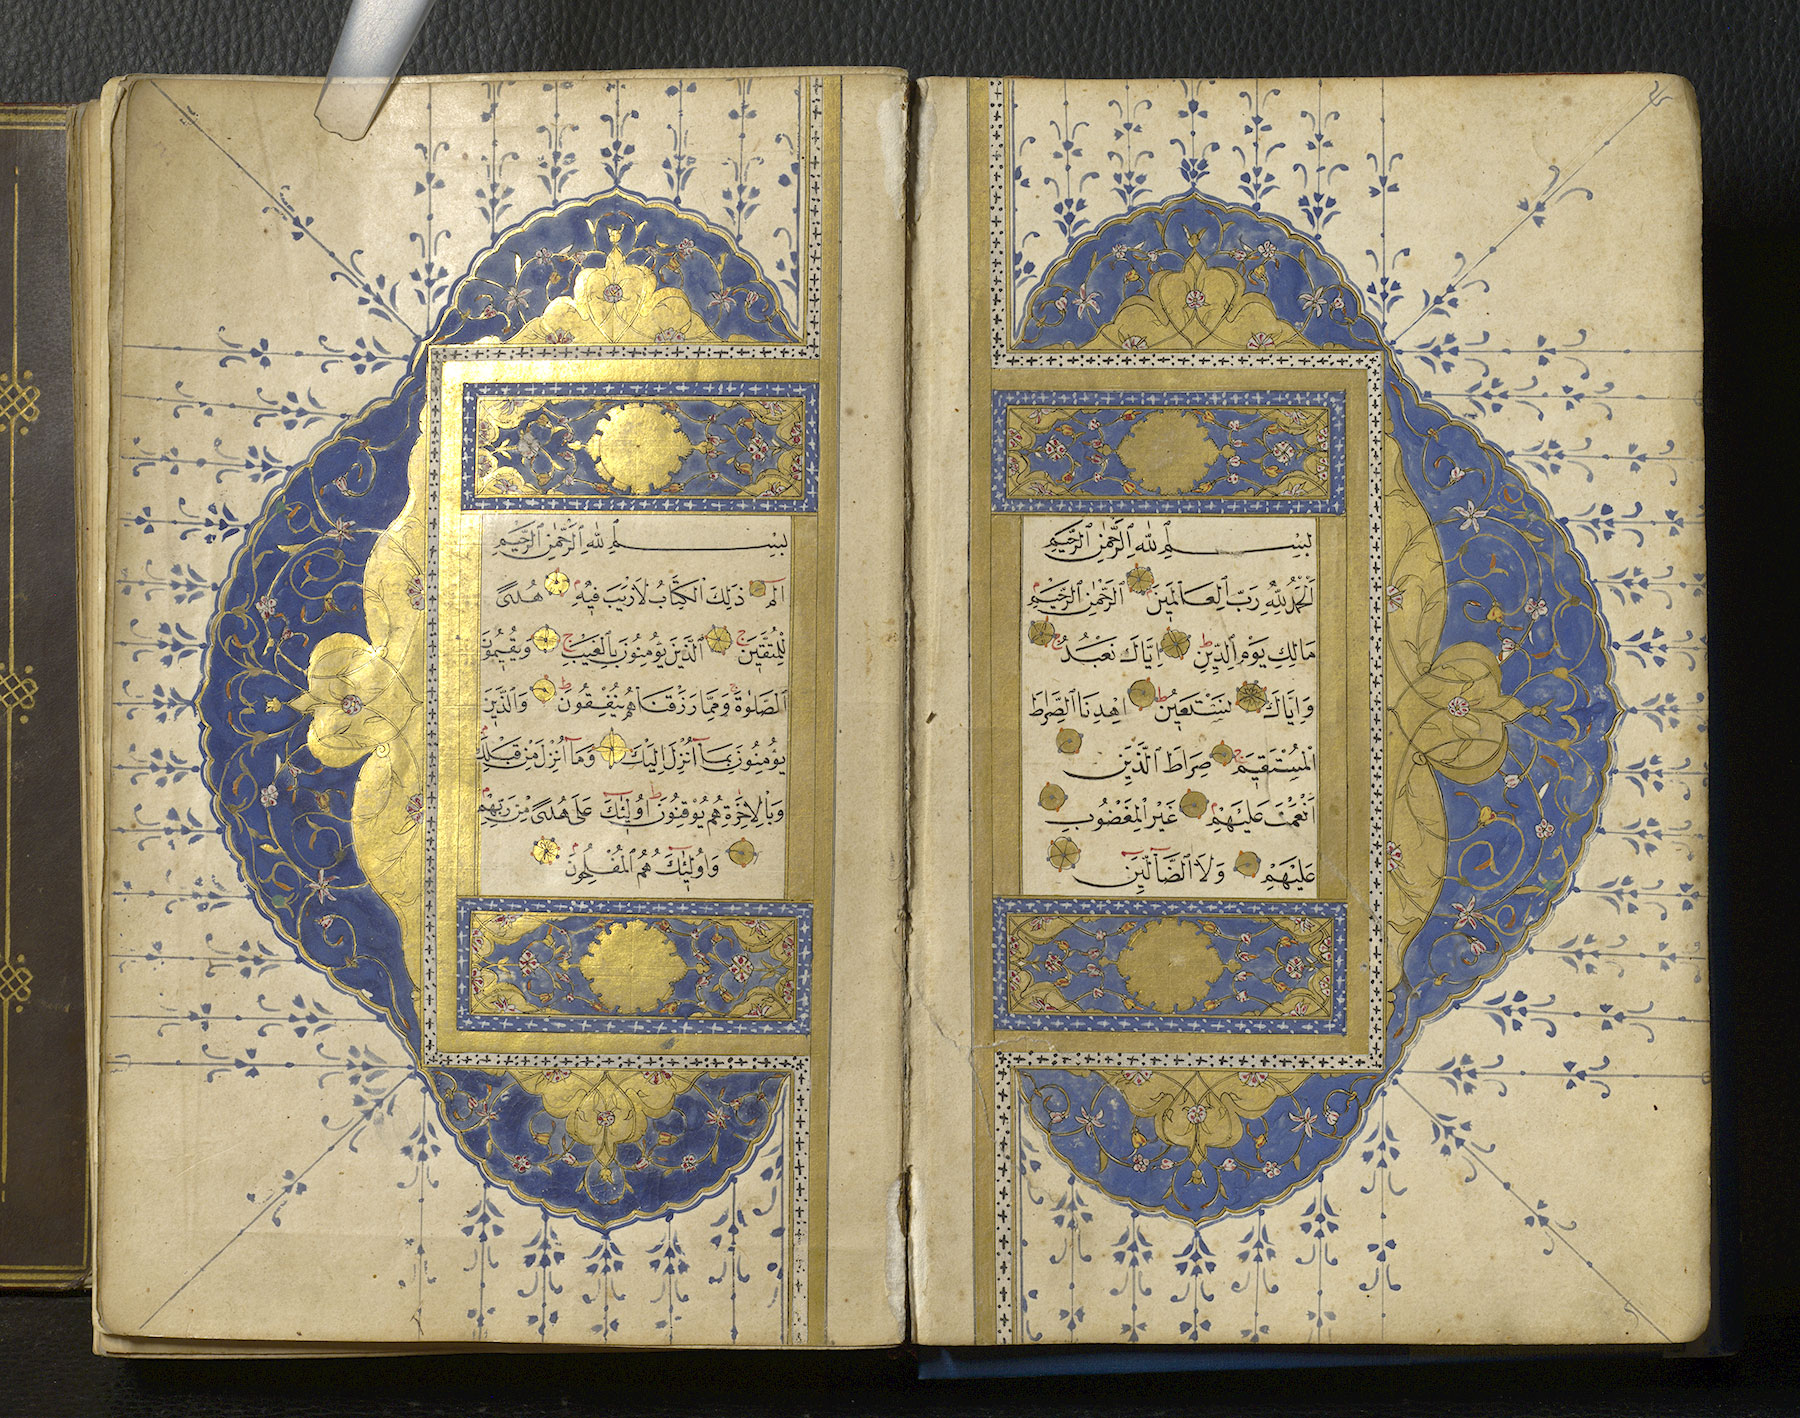 بِسْمِ اللّٰهِ الرَّحْمٰنِ الرَّحِيمِ
اَلْحَمْدُ لِلّٰهِ رَبِّ الْعَالَمِينَ الرَّحْمٰنِ الرَّحِيمِ
مَالِكِ يَوْمِ الدِّينِ اِيَّاكَ نَعْبُدُ
وَاِيَّاكَ نَسْتَعِينُ اِهْدِنَا الصِّرَاطَ
الْمُسْتَقِيمَ صِرَاطَ الَّذِينَ
اَنْعَمْتَ عَلَيْهِمْ غَيْرِ الْمَغْضُوبِ
عَلَيْهِمْ وَلَا الضَّالِّينَ
بِسْمِ اللّٰهِ الرَّحْمٰنِ الرَّحِيمِ
الم ذٰلِكَ الْكِتَابُ لَا رَيْبَ فِيهِ هُدًى
لِلْمُتَّقِينَ اَلَّذِينَ يُؤْمِنُونَ بِالْغَيْبِ وَيُقِيمُونَ
الصَّلٰوةَ وَمِمَّا رَزَقْنَاهُمْ يُنْفِقُونَ وَالَّذِينَ
يُؤْمِنُونَ بِمَا اُنْزِلَ اِلَيْكَ وَمَا اُنْزِلَ مِنْ قَبْلِكَ
وَبِالْاٰخِرَةِ هُمْ يُوقِنُونَ اُولٰئِكَ عَلٰى هُدًى مِنْ رَبِّهِمْ
وَاُولٰئِكَ هُمُ الْمُفْلِحُونَ